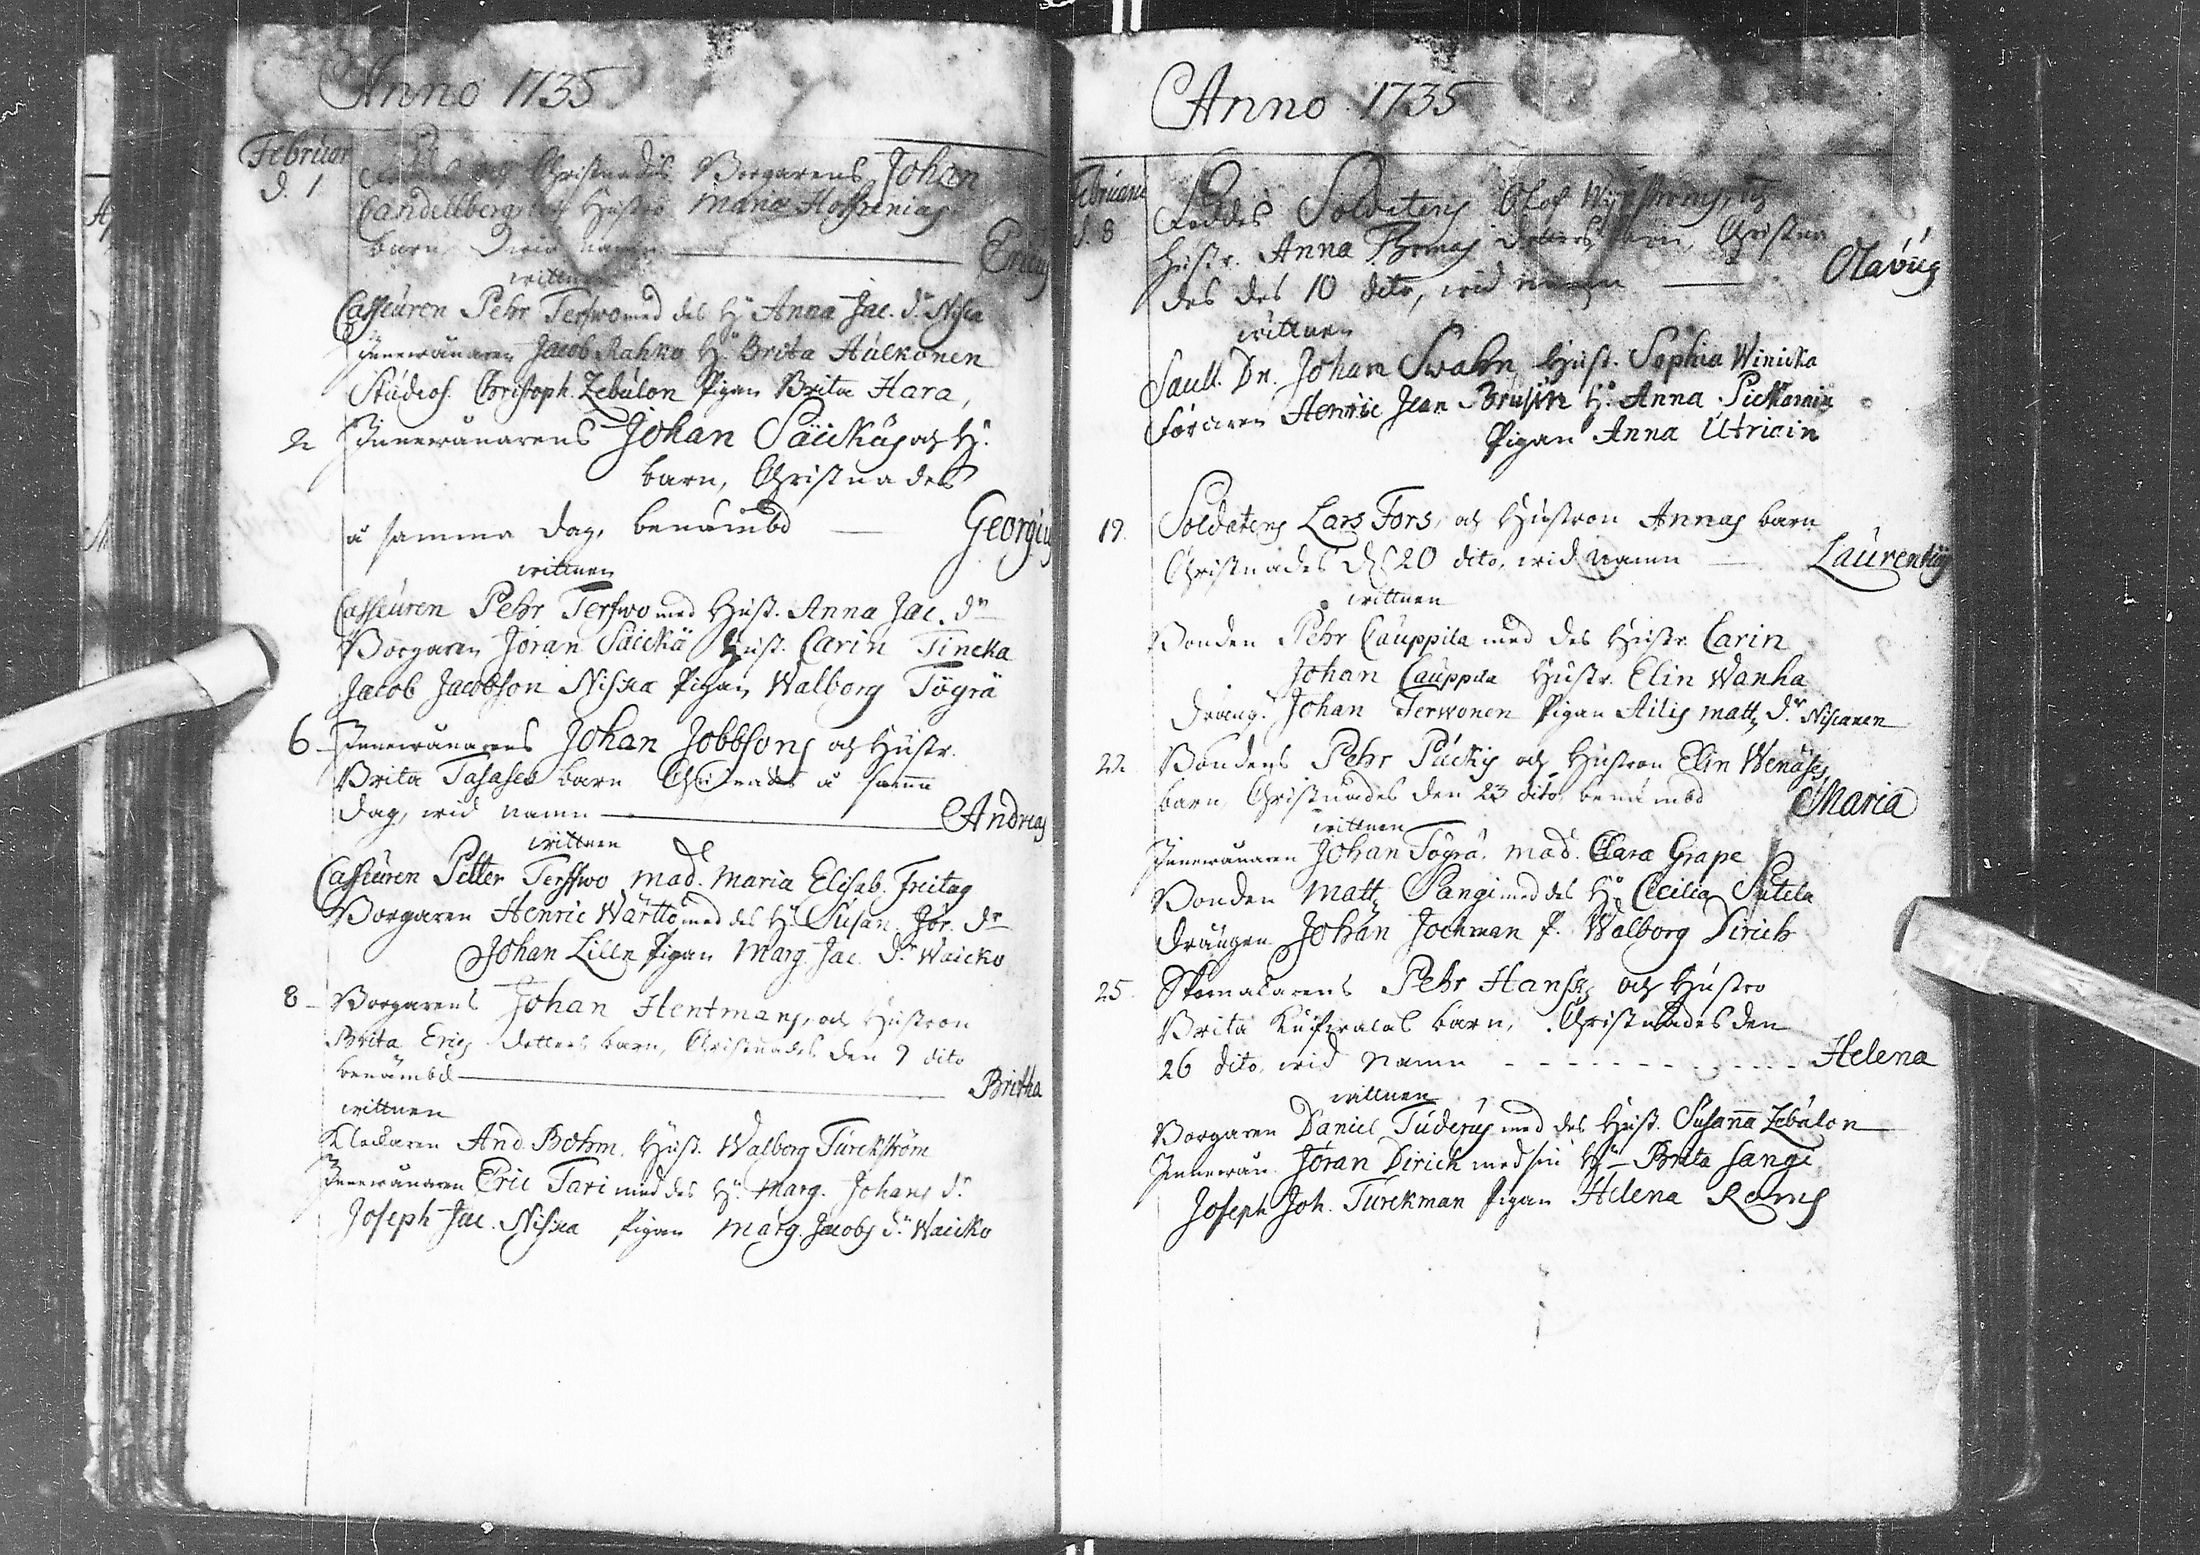 Anno 1735
Februar
d. 1
Christnades Borgarens Johan
Candellbergs och Hustro Maria
barn, wid namn Ericus
wittnen
Casseuren Pehr Terfwo med des H. Anna Jac. dr Niska
Innewånaren Jacob Rahko H. Brita Hulkonen
Studios. Christoph. Zebulon Pigan Brita Hara,
2 Innewånarens Johan Säickäs och H.
barn, Christnades
å samma dag, benämbd Georgius
wittnen
Casseuren Pehr Terfwo med Hust. Anna Jac. dr
Borgaren Jöran Säickä Hust. Carin Tincka
Jacob Jacobson Niska Pigan Walborg Töyrä
6 Innewånarens Johan Jobbsons och Hustr.
Brita barn Christnades å samma
dag, wid namn Andreas
wittnen
Casseuren Petter Terffwo Mad. Maria Elisab. Freitag
Borgaren Henric Wärttö med des H. Susan. Jör. dr
Johan Lille Pigan Marg. Jac. dr Waicko
8 Borgarens Johan Hentmans, och Hustron
Brita Erics dotters barn, Christnades den 9 dito
benämbd Britha
wittnen
Klockaren And. Bohm. Hust. Walborg Turckström
Innewånaren Eric Tari med des H. Marg. Johans dr
Joseph Jac. Niska Pigan Marg. Jacobs dr Waicko
Anno 1735
Februarii
d. 8 Föddes Soldatens Olof
Hustr. Anna Thomas dotters barn, Christna
des des 10 dito, wid namn Olavus
wittnen
Johan Swahn, Hust. Sophia Winicka
Henric Jean H. Anna Pickarain
Pigan Anna Utriain
19. Soldatens Lars Fors, och Hustron Annas barn
Christnades d. 20 dito, wid namn Laurentius
wittnen
Bonden Pehr Cauppila med des Hustr. Carin
Johan Cauppila Hustr. Elin Wanha
dräng. Johan Terwonen Pigan Ailis Matts dr Niskanen
22. Bondens Pehr Puckis och Hustron Elin
barn, Christnades den 23 dito, benämbd Maria
wittnen
Innewånaren Johan Töyrä. Mad. Clara Grape
Bonden Matts Pangi med des H. Cecilia
drängen Johan Jochman P. Walborg Dirich
25. Skomakarens Pehr Hanss och Hustro
Brita barn, Christnades den
26 dito, wid namn Helena
wittnen
Borgaren Daniel Tuderus med des Hust. Susanna Zebulon
Innewån. Jöran Dirich med sin H. Brita Pangi
Joseph Joh. Turckman Pigan Helena